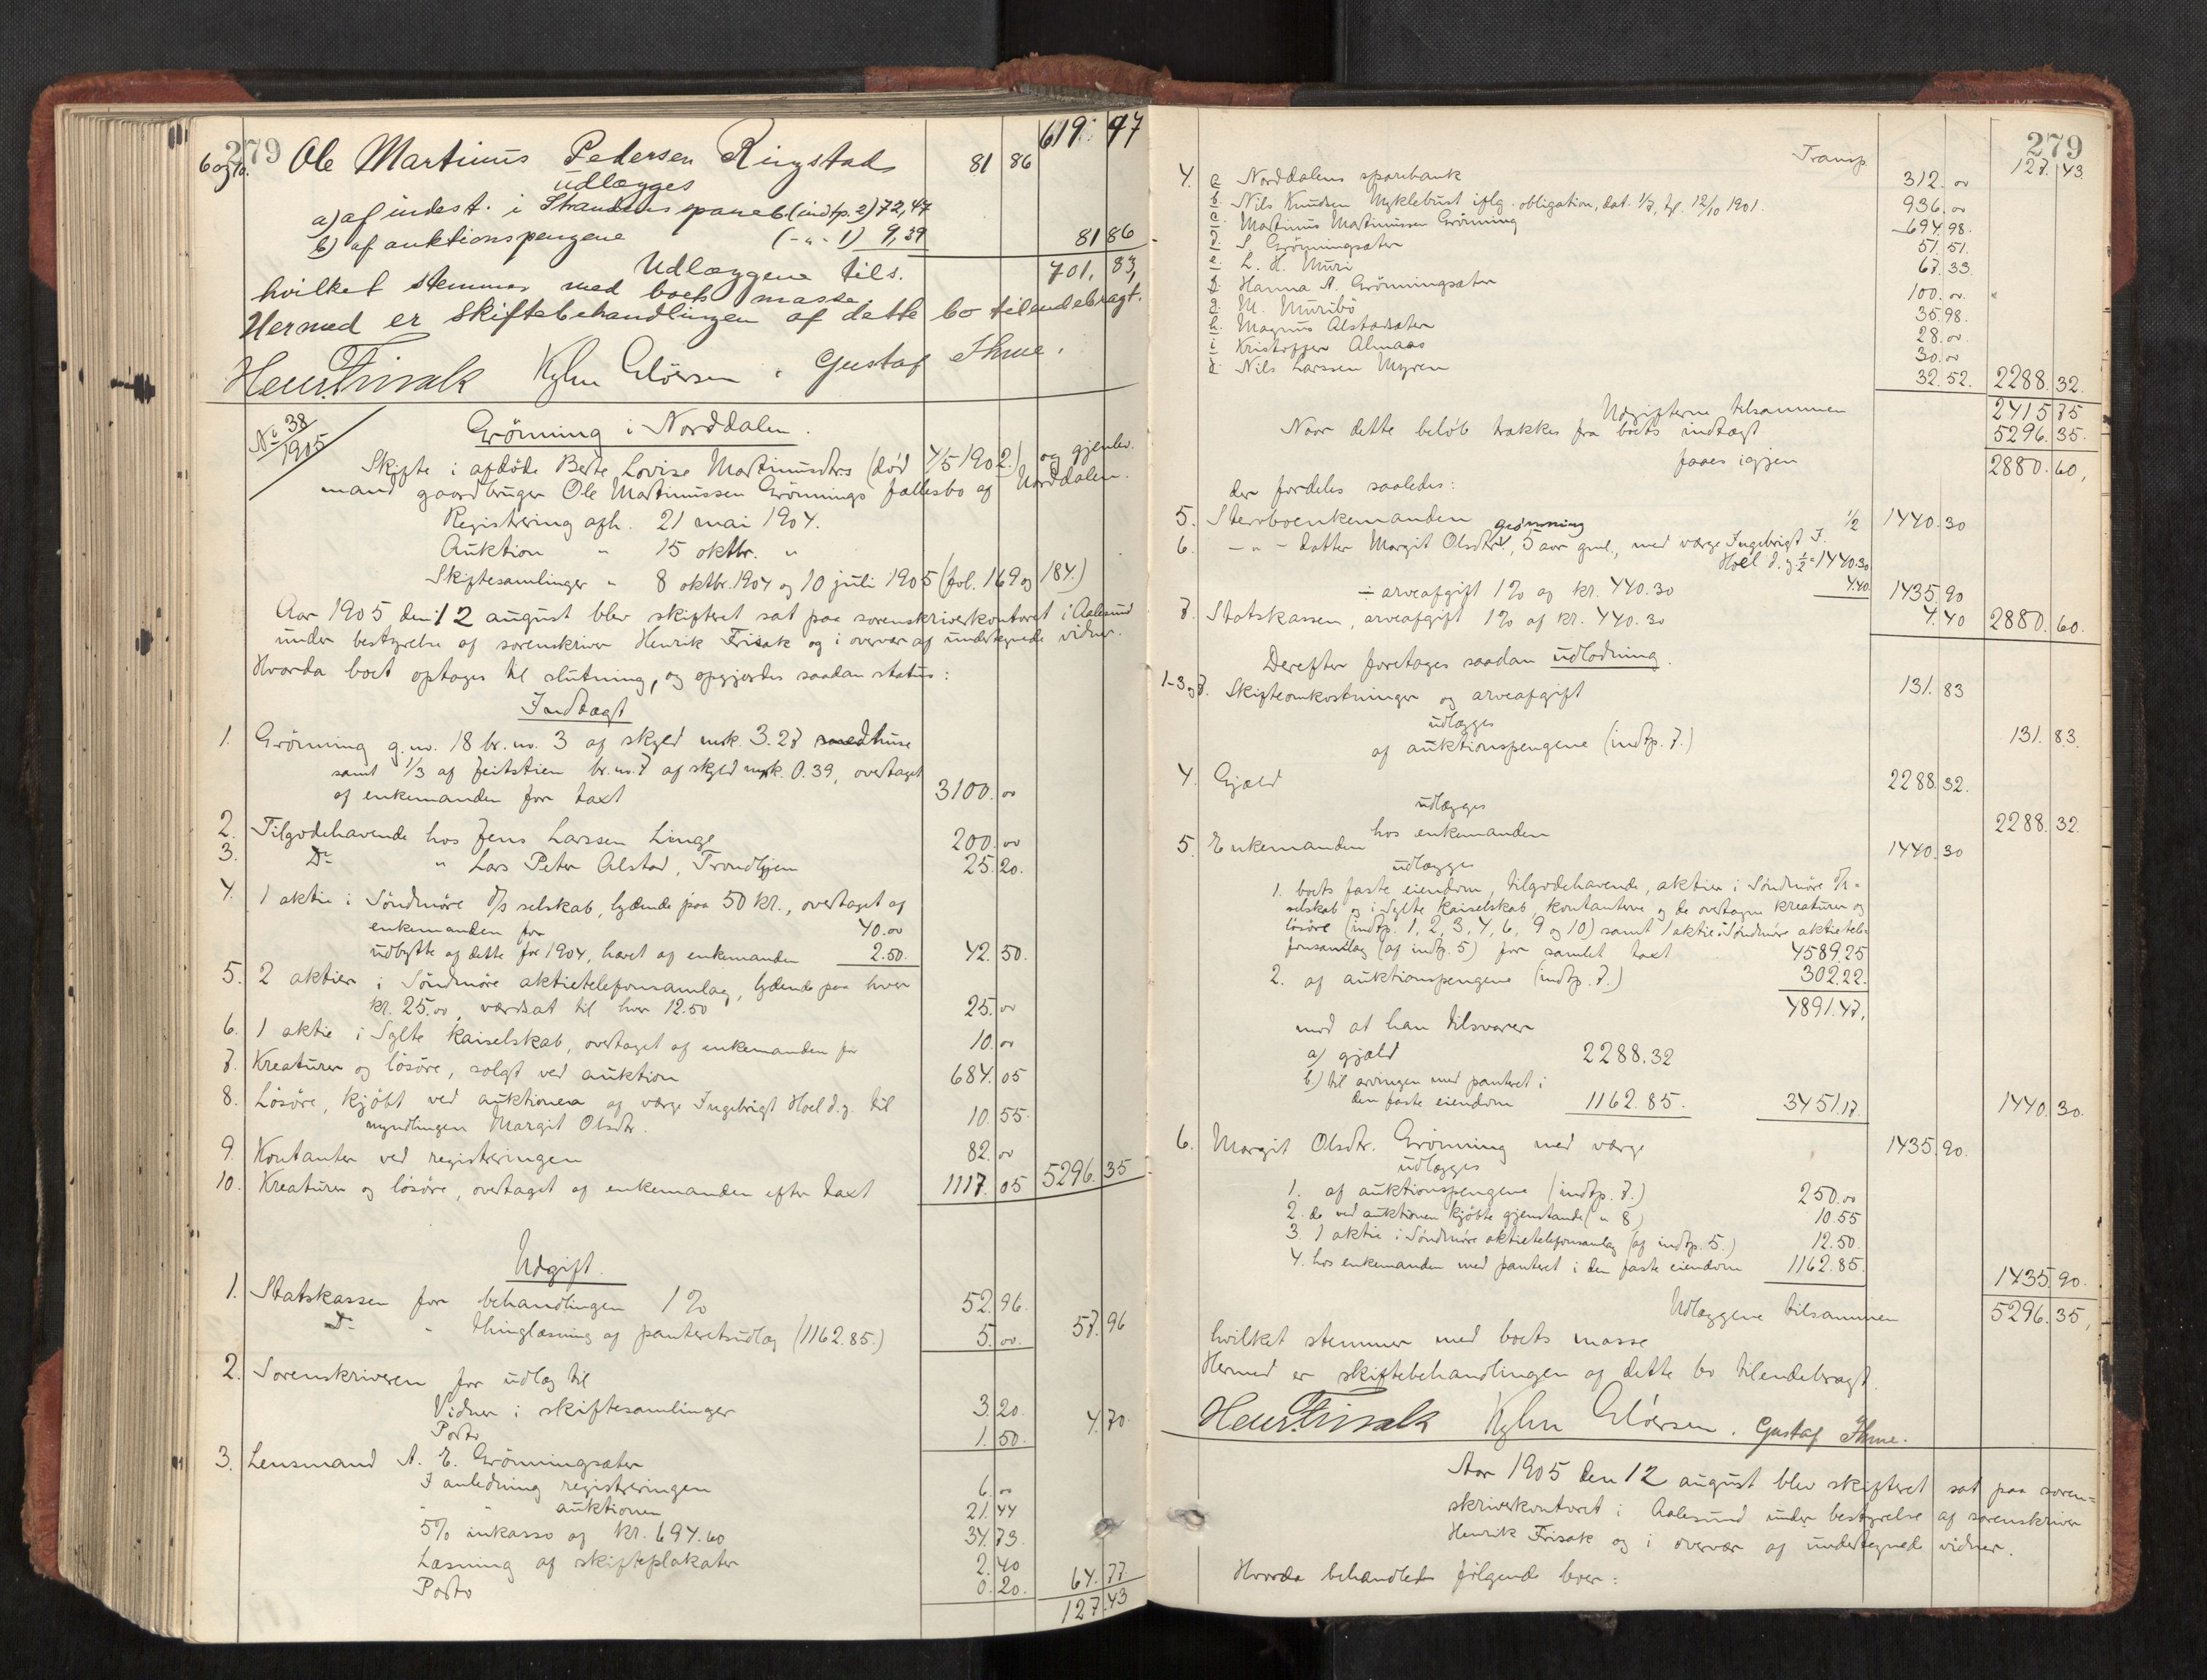 279
619. 97
6 og 10. Ole Martinus Pedersen Ringstad 81 86
udlægges
a) af indest. i Strandens spareb. (indtp. 2) 72,47
b) af auktionspengene (-„- 1) 9,39 81 86
Udlæggene tils. 701, 83,
hvilket stemmer med boets masse.
Hermed er skiftebehandlingen af dette bo tilendebragt.
Henr. Frisak Gustaf Thrue.
No 38/1905
Grönning i Norddalen.
Skifte i afdöde Berte Lovise Martinusdtrs (död 4/5 1902.) og gjenlev.
mand gaardbruger Ole Martinussen Grönnings fællesbo af Norddalen.
Registrering afh. 21 mai 1904.
Auktion „ 15 oktbr. „
Skiftesamlinger „ 8 oktbr. 1904 og 10 juli 1905 (fol. 169 og 184.)
Aar 1905 den 12 august blev skifteret sat paa sorenskriverkontoret i Aalesund
under bestyrelse af sorenskriver Henrik Frisak og i overvær af undertegnede vidner.
Hvorda boet optages til slutning, og opgjordes saadan status:
Indtægt
1. Grönning g. no. 18 br. no. 3 af skyld mrk. 3.27 med huse
samt 1/3 af Feitstien br. no. 7 af skyld mrk. 0.39, overtaget
af enkemanden for taxt 3100. oo
2. Tilgodehavende hos Jens Larssen Linge 200. oo
3. Do „ Lars Peter Alstad, Trondhjem 25. 20.
4. 1 aktie i Söndmöre d/s selskab, lydende paa 50 kr., overtaget af
enkemanden for 40. oo
udbytte af dette for 1904, hævet af enkemanden 2.50. 42. 50.
5. 2 aktier i Söndmöre aktietelefonsamlag, lydende paa hver
kr. 25. oo, værdsat til hver 12.50 25. oo
6. 1 aktie i Sylte kaiselskab, overtaget af enkemanden for 10. oo
7. Kreaturer og lösöre, solgt ved auktion 684. 05
8. Lösöre, kjöbt ved auktionen af værge Ingebrigt Hoel d. y. til
myndlingen Margit Olsdtr. 10. 55.
9. Kontanter ved registreringen 82. oo
10. Kreaturer og lösöre, overtaget af enkemanden efter taxt 1117. 05 5296. 35
Udgift.
1. Statskassen for behandlingen 1% 52. 96.
Do „ thinglæsning af panteretsudlæg (1162.85.) 5. oo. 57. 96
2. Sorenskriveren for udlæg til
Vidner i skiftesamlinger 3. 20.
Porto 1. 50. 4. 70.
3. Lensmand A. E. Grönningsæter
I anledning registreringen 6. oo
„ „ auktionen 21. 44
5% inkasso af kr. 694.60 34. 73.
Læsning af skifteplakater 2. 40
Porto 0. 20. 64. 77
127. 43
279
Transp. 127. 43.
4. a Norddalens sparebank 312. oo
b. Nils Knudsen Myklebust iflg. obligation, dat. 1/7, tgl. 12/10 1901. 936. oo
c. Martinus Martinussen Grönning 694. 98.
d. S. Grönningsæter 51. 51.
e. L. H. Muri 67. 33.
f. Hanna A. Grönningsæter 100. oo.
g. M. Muribö 35. 98.
h. Magnus Alstadsæter 28. oo.
i Kristoffer Almaas 30. oo
j. Nils Larssen Myren 32. 52. 2288. 32.
Udgifterne tilsammen 2415 75
Naar dette belöb trækkes fra boets indtægt 5296. 35.
faaes igjen 2880. 60,
der fordeles saaledes:
5. Stervboenkemanden 1/2 1440. 30
6. - „ - datter Margit Olsdtr. Grönning, 5 aar gml., med værge Ingebrigt I.
Hoel d. y. 1/2 = 1440.30
÷ arveafgift 1% af kr. 440.30 4.40 1435. 90
7. Statskassen, arveafgift 1% af kr. 440.30 4. 40 2880. 60.
Derefter foretages saadan udlodning.
1-3 og 7. Skifteomkostninger og arveafgift 131. 83
udlægges
af auktionspengene (indtp. 7.) 131. 83.
4. Gjæld 2288. 32.
udlægges
hos enkemanden 2288. 32.
5. Enkemanden 1440. 30
udlægges
1. boets faste eiendom, tilgodehavende, aktier i Söndmöre d/s-
selskab og i Sylte kaiselskab, kontanterne og de overtagne kreaturer og
lösöre (indtp. 1, 2, 3, 4, 6, 9 og 10) samt 1 aktie i Söndmöre aktietele-
fonsamlag (af indtp. 5) for samlet taxt 4589.25
2. af auktionspengene (indtp. 7.) 302.22.
4891.47.
mod at han tilsvarer
a) gjæld 2288.32
b.) til arvingen med panteret i
den faste eiendom 1162.85. 3451.17. 1440. 30.
6. Margit Olsdtr. Grönning med værge 1435. 90.
udlægges
1. af auktionspengene (indtp. 7.) 250. oo
2. de ved auktionen kjöbte gjenstande („ 8) 10.55
3. 1 aktie i Söndmöre aktietelefonsamlag (af indtp. 5.) 12.50.
4. hos enkemanden med panteret i den faste eiendom 1162.85. 1435. 90.
Udlæggene tilsammen 5296. 35,
hvilket stemmer med boets masse
Hermed er skiftebehandlingen af dette bo tilendebragt.
Henr. Frisak Gustaf Thrue.
Aar 1905 den 12 august blev skifteret sat paa soren-
skriverkontoret i Aalesund under bestyrelse af sorenskriver
Henrik Frisak og i overvær af undertegnede vidner.
Hvorda behandledes fölgende boer: